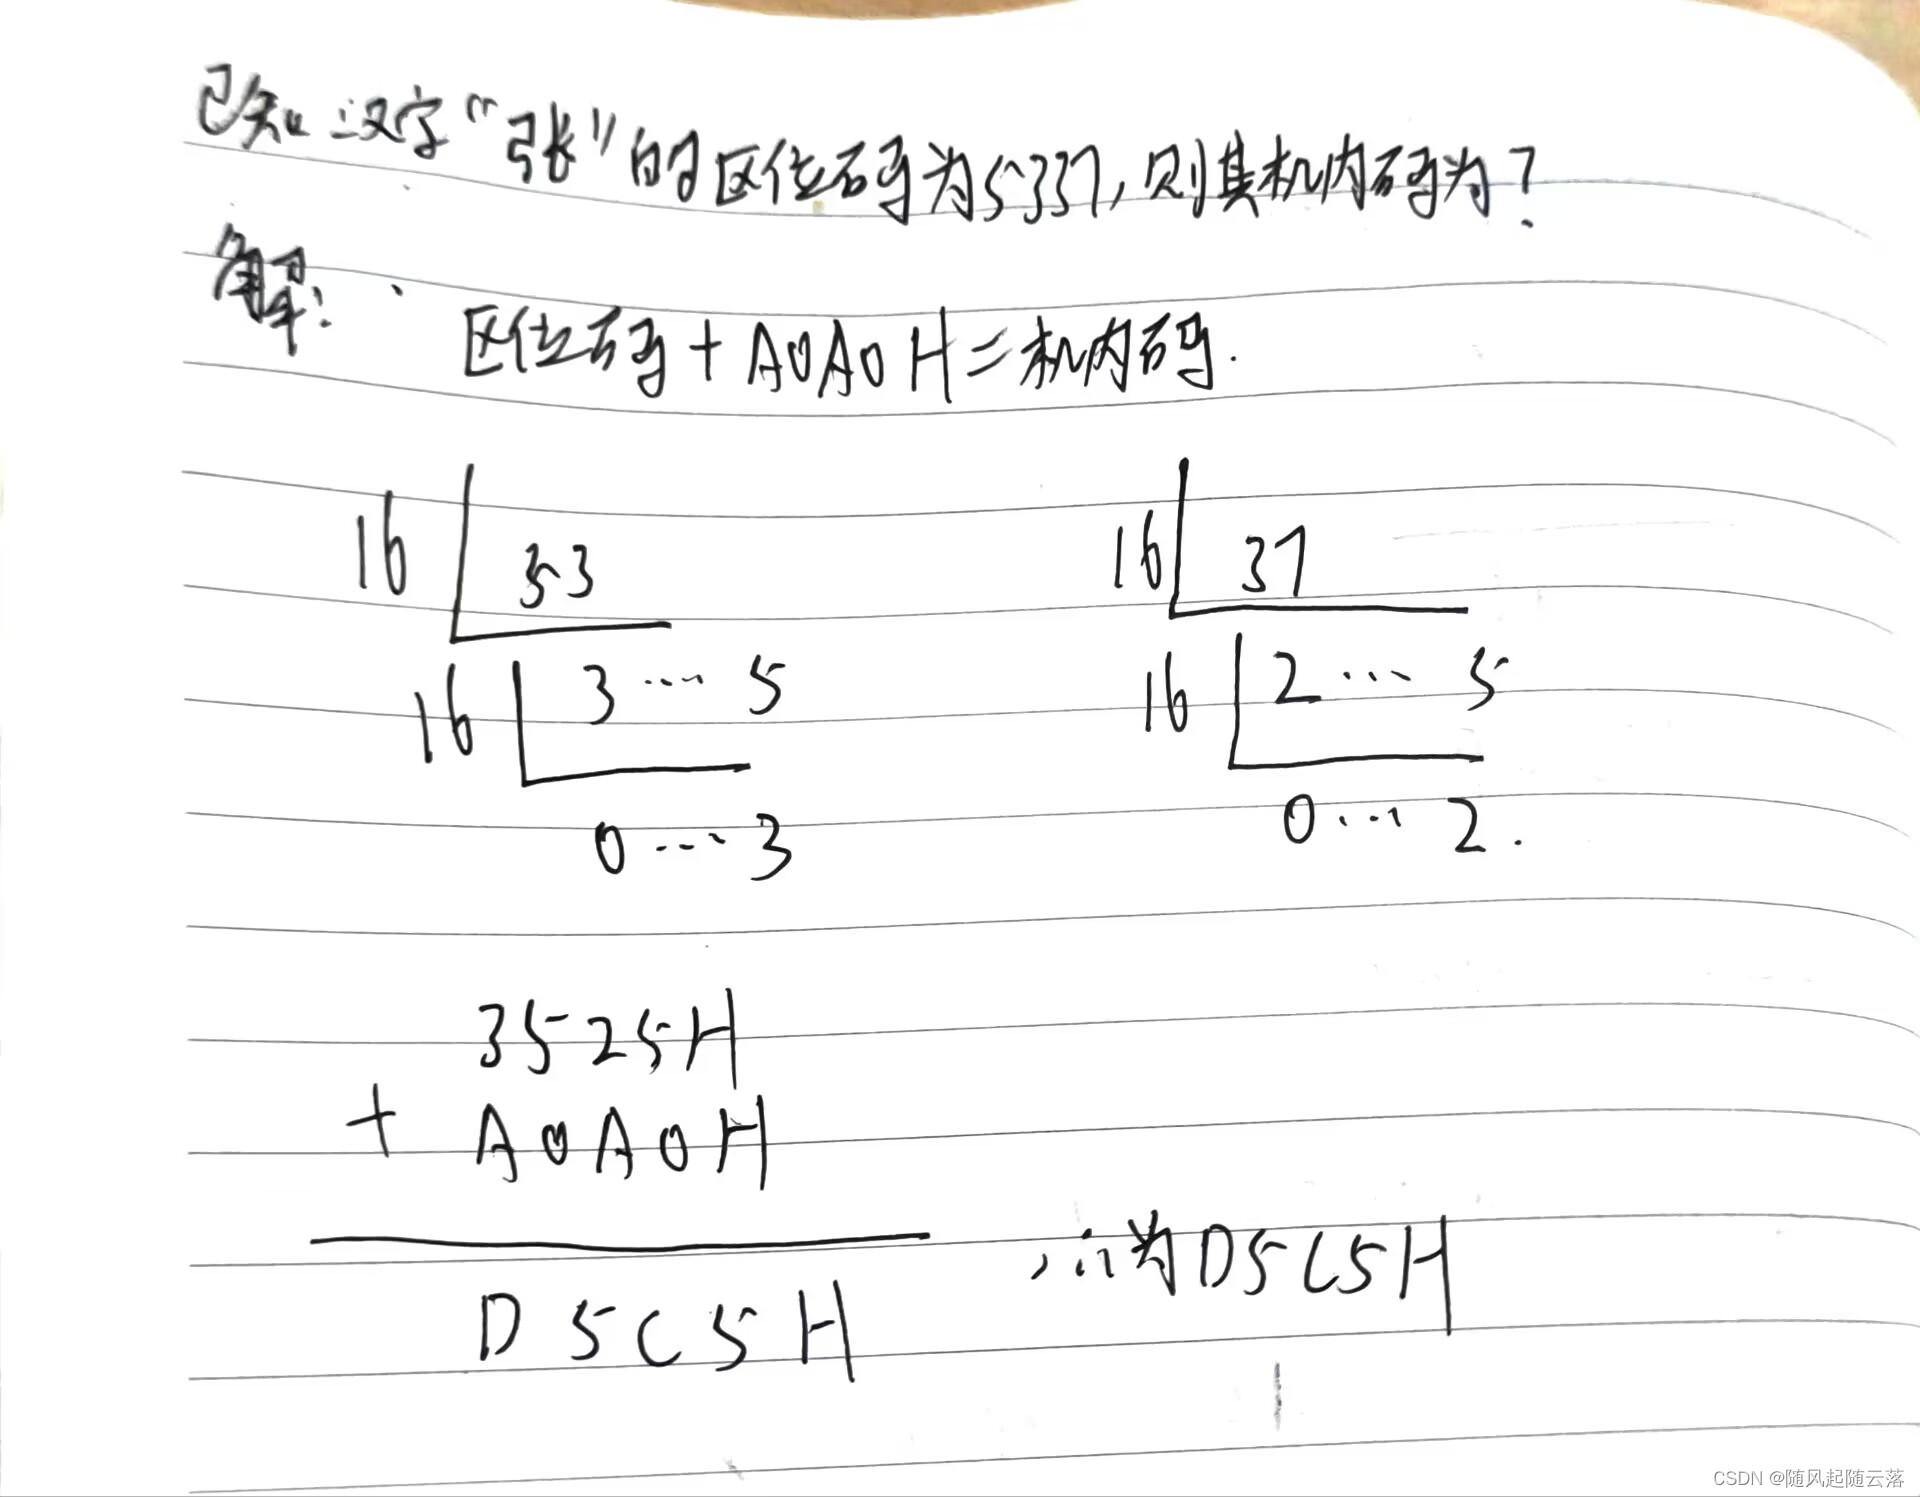 已知汉字“张”的区位码为5337,则其机内码为?
解:
区位码+A0A0H=机内码.
16 53
16 3 ···· 5
0 ··· 3
16 37
16 2 ··· 5
0 ··· 2.
3525H
+ A0A0H
D5C5H
,∴为D5C5H
CSDN @随风起随云落